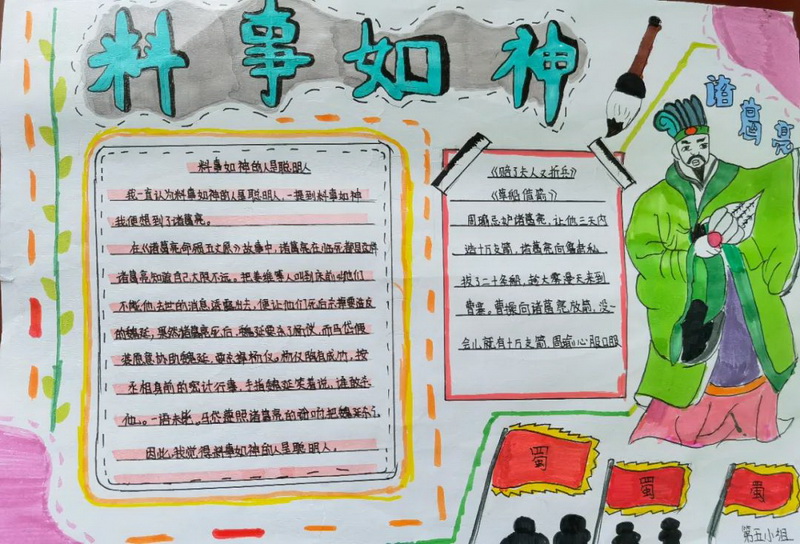 料事如神
诸葛亮
料事如神的人是聪明人
我一直认为料事如神的人是聪明人,一提到料事如神
我便想到了诸葛亮。
在《诸葛亮命殒五丈原》故事中,诸葛亮在临死都
诸葛亮知道自己大限不远。把姜维等人叫到床前
不能他去世的消息透露出去,便让他们死后去
的魏延,果然诸葛亮死后,魏延要杀了杨仪,而马岱假
装愿意协助魏延,要去杀杨仪。杨仪胸有成竹,按
丞相身前的密计行事,手指魏延笑着说,谁敢杀
他。一语未毕,马岱遵照诸葛亮的吩咐把魏延杀了
因此,我觉得料事如神的人是聪明人。
《赔了夫人又折兵》
《草船借箭》
周瑜忌妒诸葛亮,让他三天内
造十万支箭,诸葛亮向鲁肃私
拨了二十条船,趁大雾漫天来到
曹寨。曹操向诸葛亮放箭,没一
会儿就有十万支箭,周瑜心服口服
蜀
蜀
蜀
第五小组